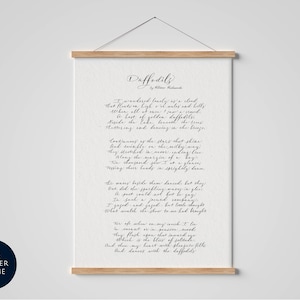 Daffodils
by William Wordsworth
I wandered lonely as a cloud
That floats on high o'er vales and hills
When all at once I saw a crowd
A host, of golden daffodils
Beside the lake, beneath the trees
Fluttering and dancing in the breeze
Continuous as the stars that shine
And twinkle on the milky way
They stretched in never-ending line
Along the margin of a bay
Ten thousand saw I at a glance
Tossing their heads in sprightly dance
The waves beside them danced but they
Out-did the sparkling waves in glee
A poet could not but be gay
In such a jocund company
I gazed and gazed but little thought
What wealth the show to me had brought
For oft when on my couch I lie
In vacant or in pensive mood
They flash upon that inward eye
Which is the bliss of solitude
And then my heart with pleasure fills
And dances with the daffodils